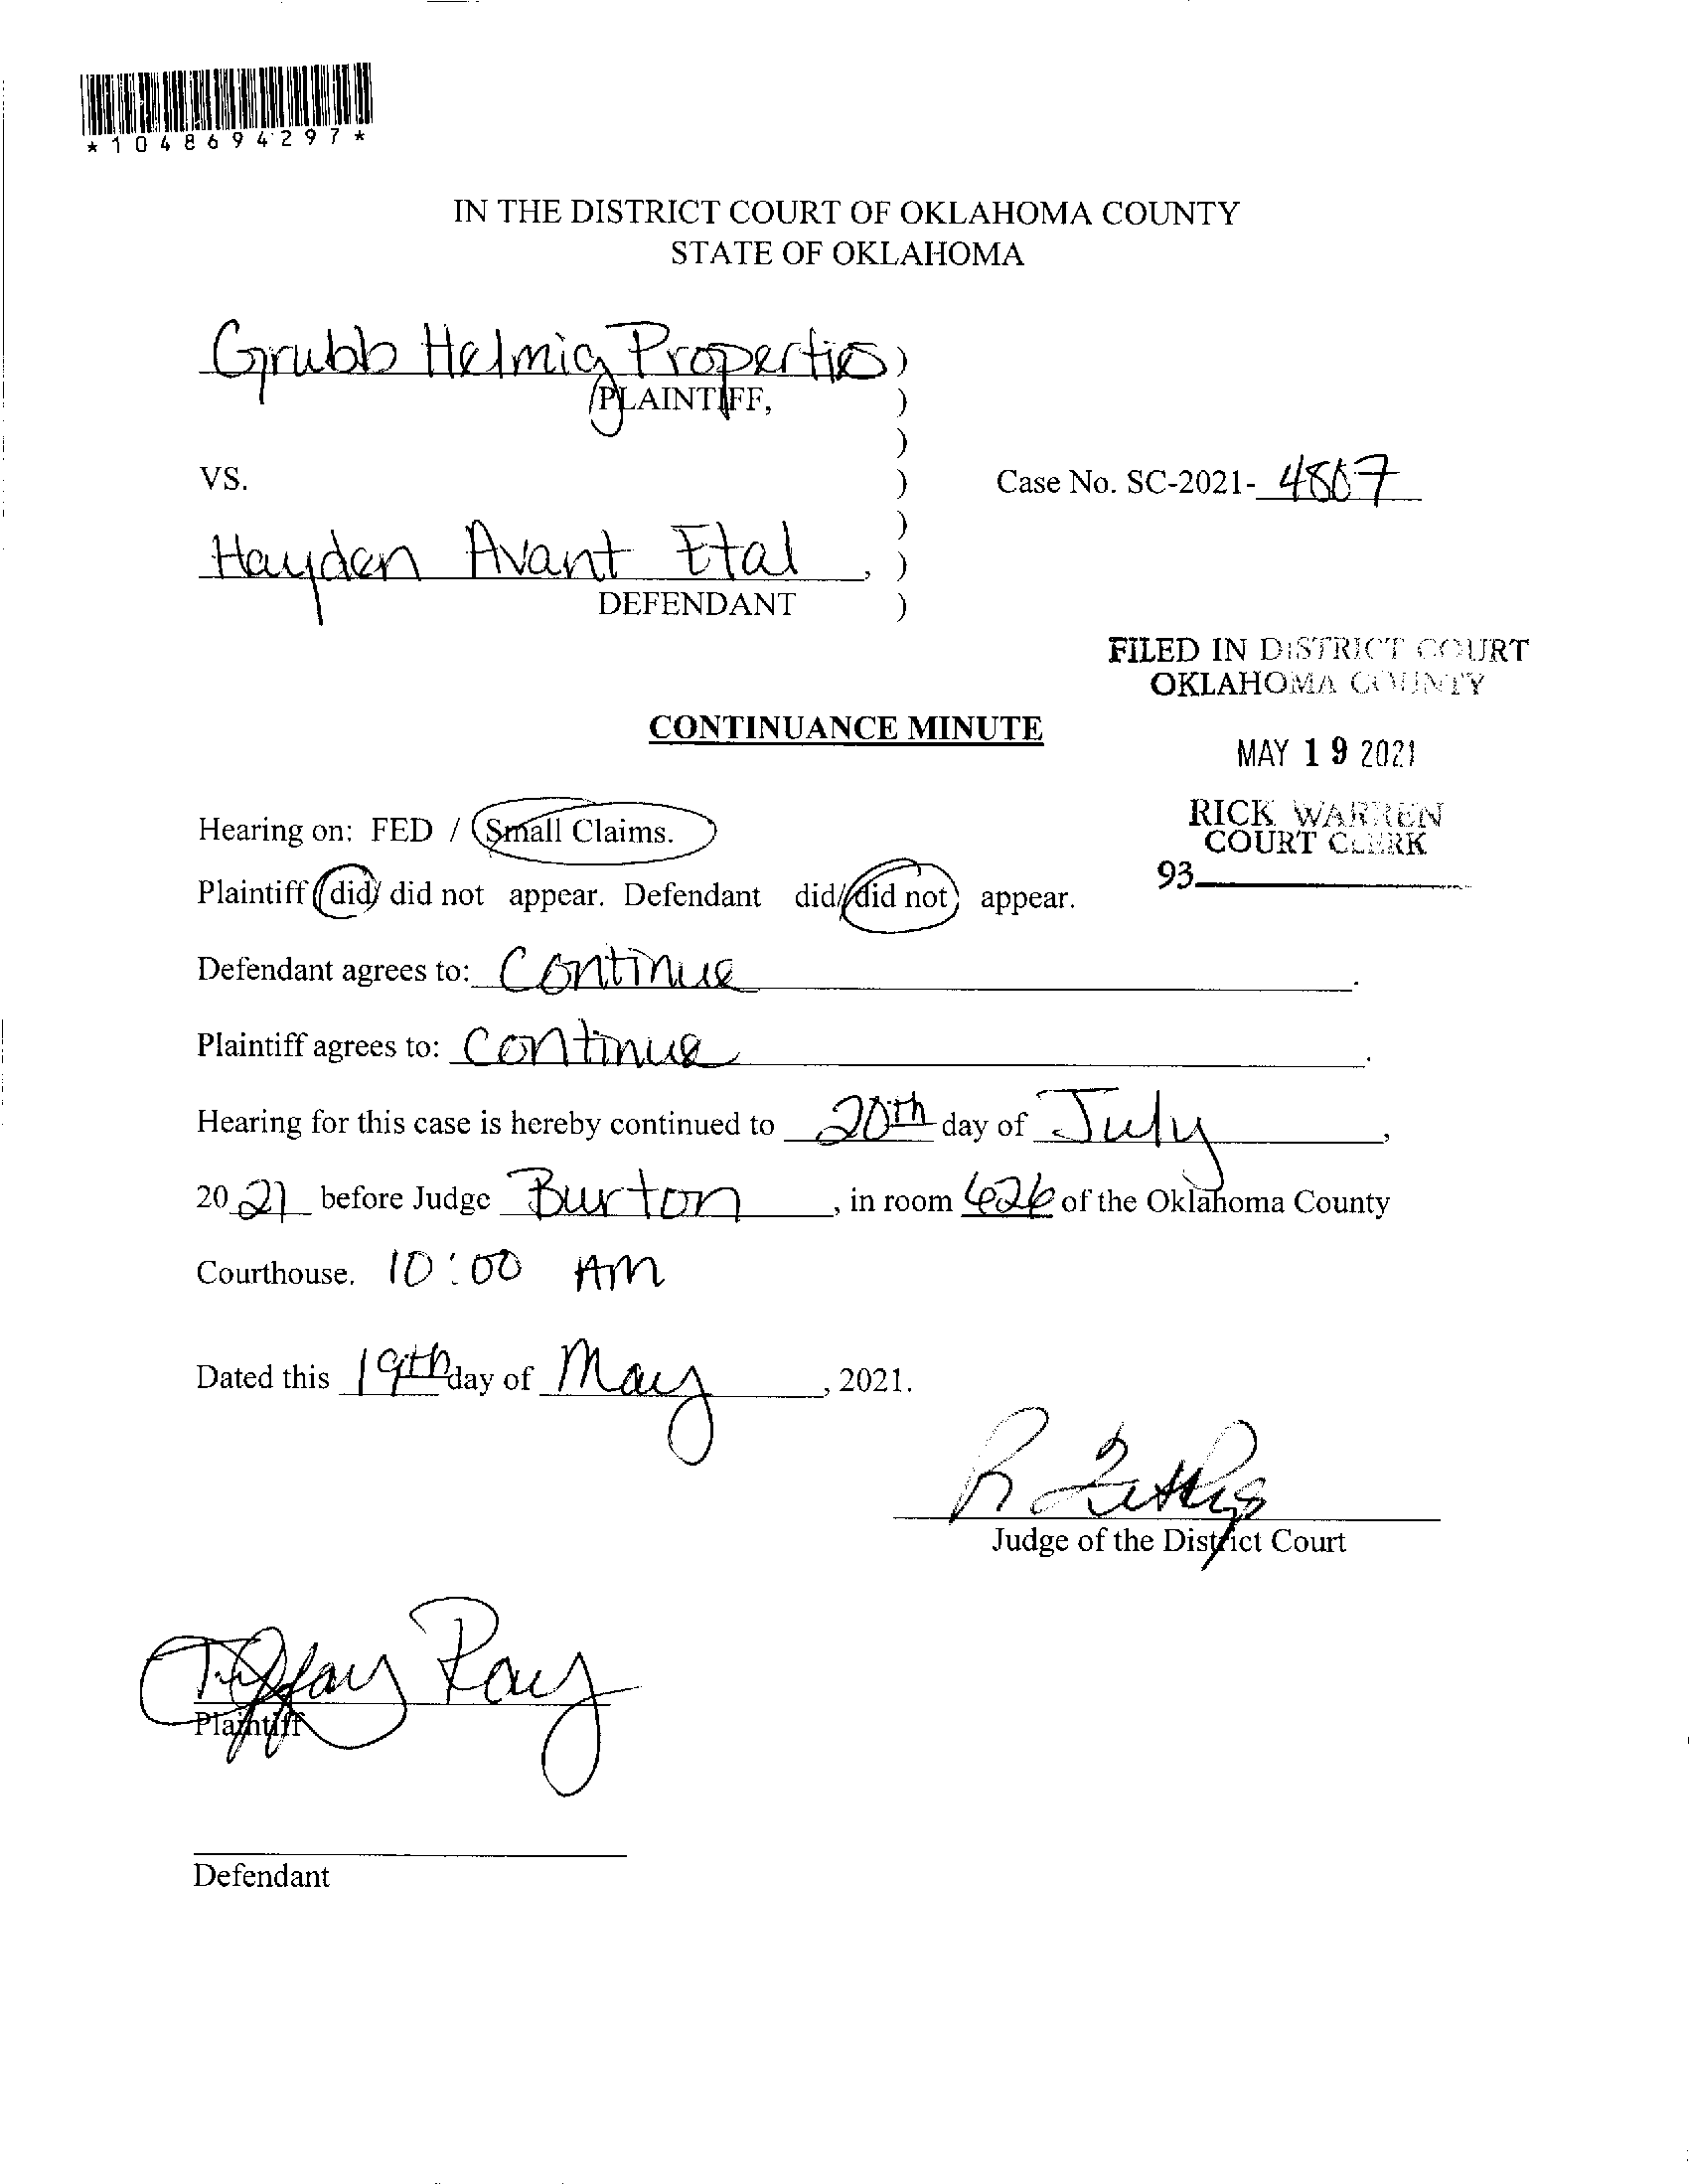 *1048694297*
IN THE DISTRICT COURT OF OKLAHOMA COUNTY
STATE OF OKLAHOMA
Grubb Helmig Properties )
PLAINTIFF, )
)
VS. ) Case No. SC-2021-4867
)
Hayden Avant Etal , )
DEFENDANT )
FILED IN DISTRICT COURT
OKLAHOMA COUNTY
CONTINUANCE MINUTE
MAY 19 2021
RICK WARREN
COURT CLERK
93
Hearing on: FED / Small Claims.
Plaintiff did/ did not appear. Defendant did/ did not appear.
Defendant agrees to: Continue .
Plaintiff agrees to: Continue .
Hearing for this case is hereby continued to 20th day of July ,
20 21 before Judge Burton , in room 626 of the Oklahoma County
Courthouse. 10:00 AM
Dated this 19th day of May , 2021.
Judge of the District Court
Tiffany Ray
Plaintiff
Defendant